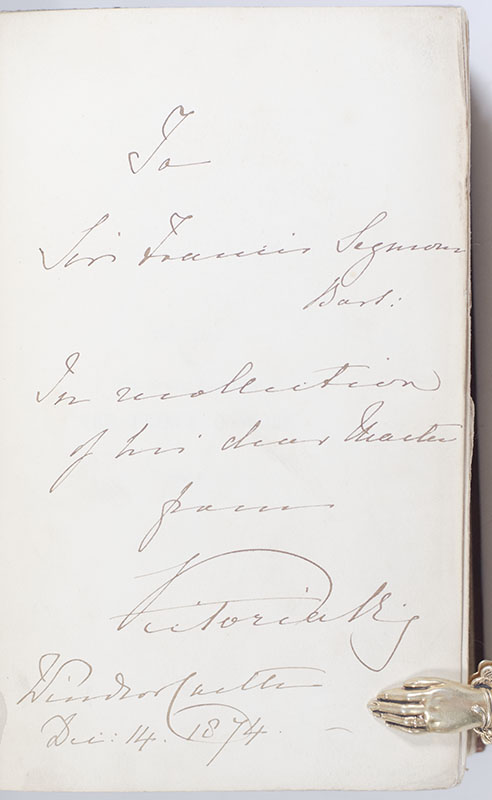 To
Sir Francis Seymour
Bart:
In recollection
of his dear Master
from
Victoria Rg
Windsor Castle
Dec: 14. 1874.